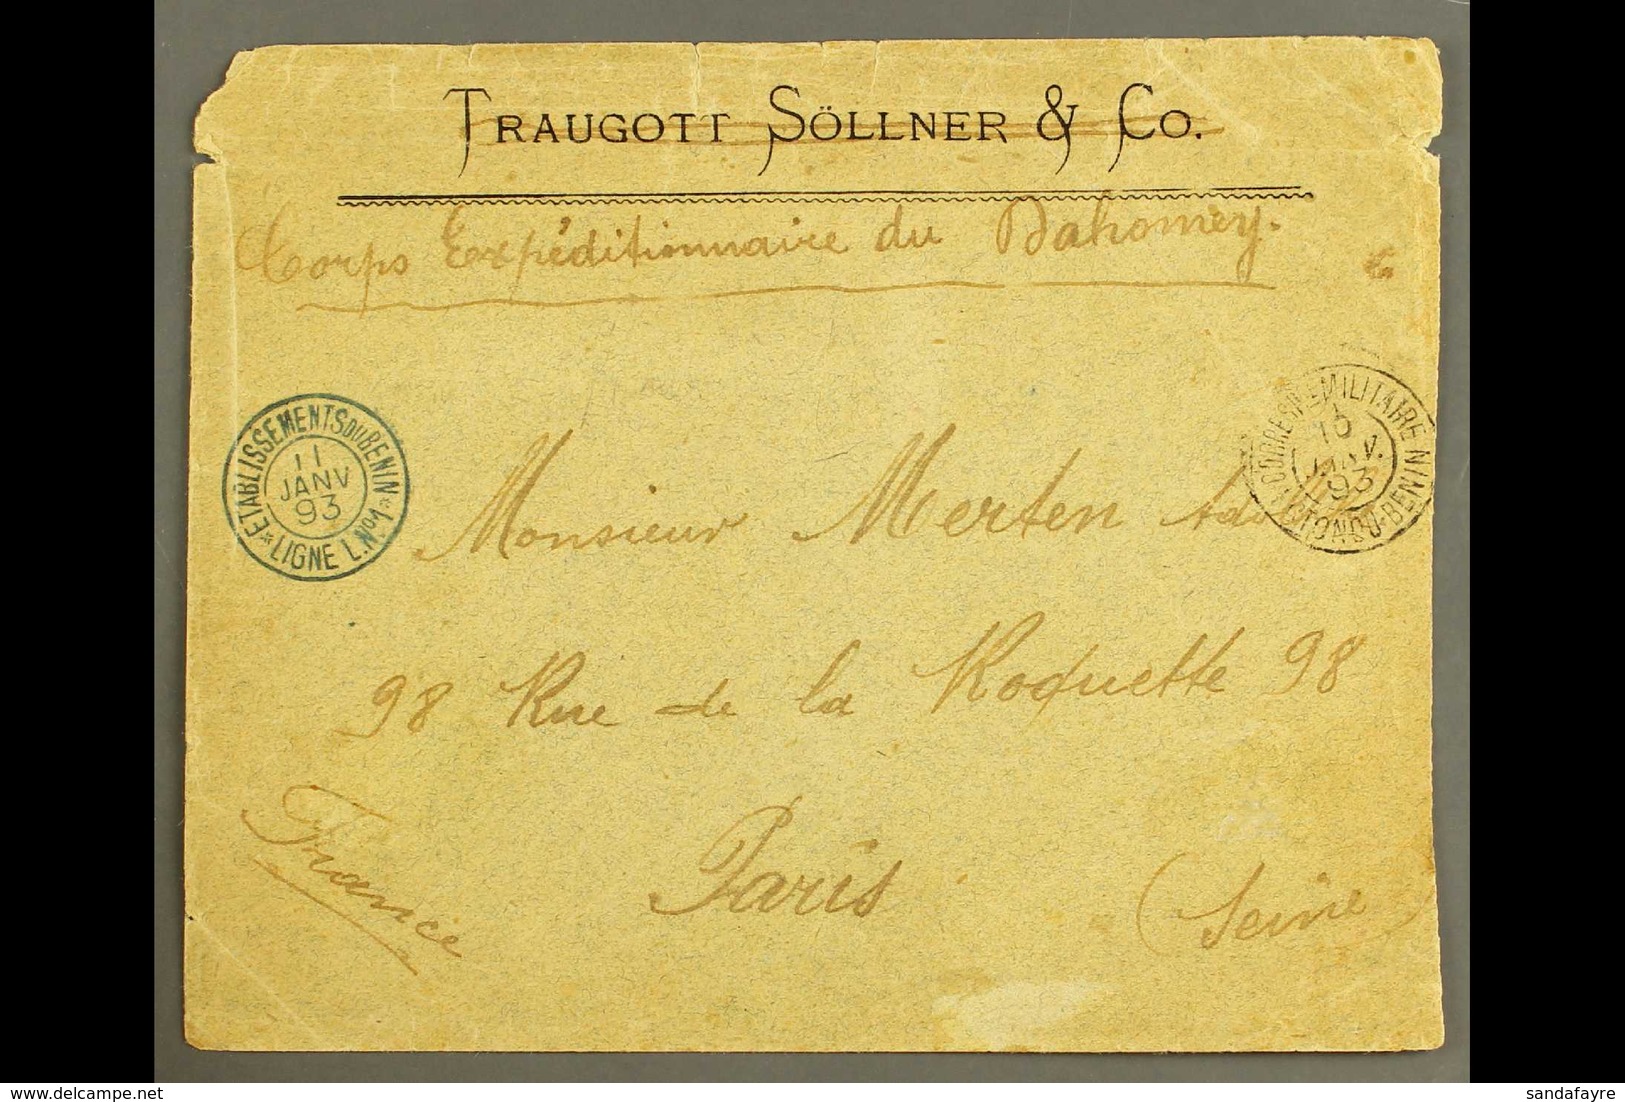 TRAUGOTT SÖLLNER & CO.
Corps Expéditionnaire du Dahomey.
ETABLISSEMENTS DU BENIN
11
JANV
93
LIGNE L. No 1
CORRESP MILITAIRE
10
JANV.
93
BENIN
Monsieur Merten
98 Rue de la Roquette 98
France
Paris
(Seine)
sandafayre